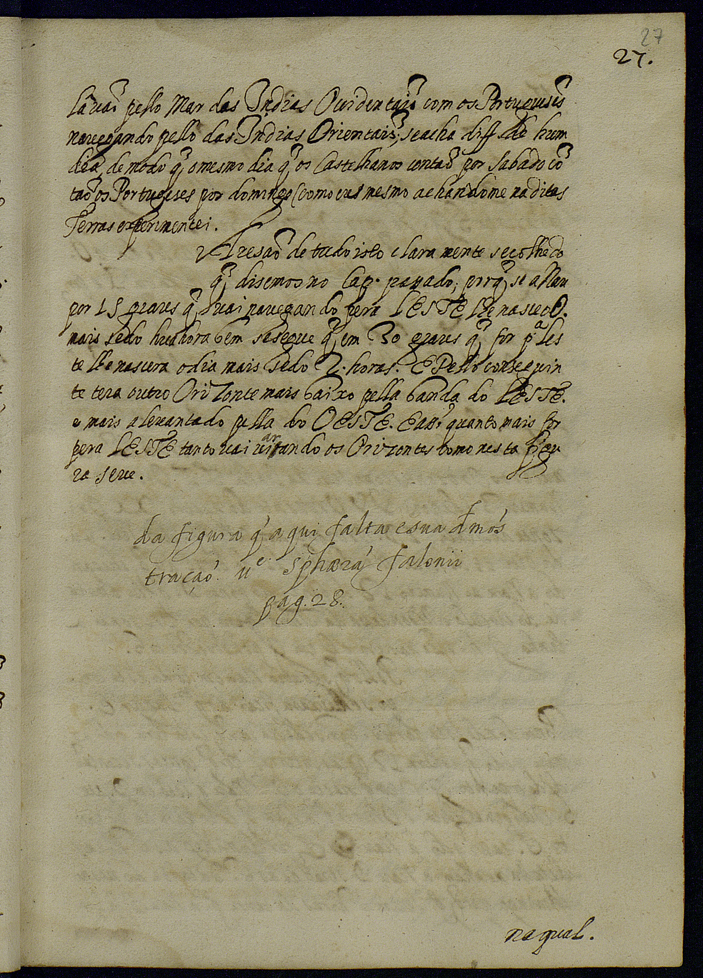 27
27.
la vai pello Mar das Indias Ocidentais com os Portugueses
navegando pello das Indias Orientais; se acha diff. de hum
dia, de modo q̃ o mesmo dia q̃ os Castelhanos contaõ por Sabado cõ
taõ os Portugueses por domingo como eu mesmo achandome na ditas
Terras experimentei.
A resaõ de tudo isto claramente se colhe do
q̃ disemos no Cap. passado; porq̃ se a
por 15 graus q̃ vai navegando pera LESTE lhe nasce o
mais sedo huã hora bem se segue q̃ em 30 graus q̃ for p.ª les
te lhe nascera o dia mais sedo 2. horas. E Pello conseguin
te tera outro Orizonte mais baixo pella banda do LESTE.
e mais alevantado pella do OESTE. E assi quanto mais for
pera LESTE tanto vai variando os Orizontes como nesta figu
ra se ve.
da figura q̃ aqui falta e sua demõs
traçaõ. v.e Sphæra falonii
pag. 28.
na qual.